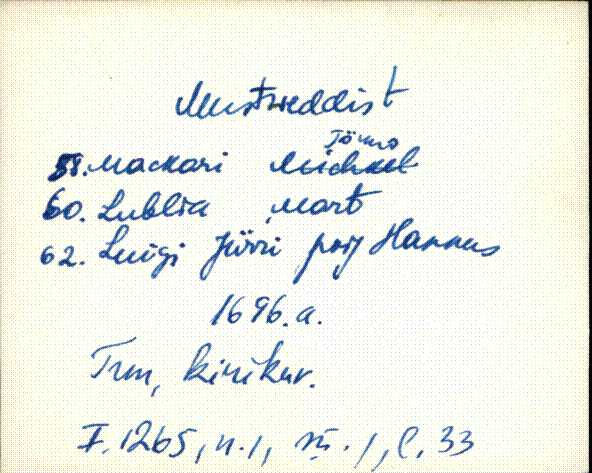 Mustweddist
Tönno
58. Mackari Michael
60. Lublia Mart
62. Luigi Jürri poig Hannus
1696.a.
Trm, kirikur.
F. 1265, n.1, s.ü. 1, l. 33